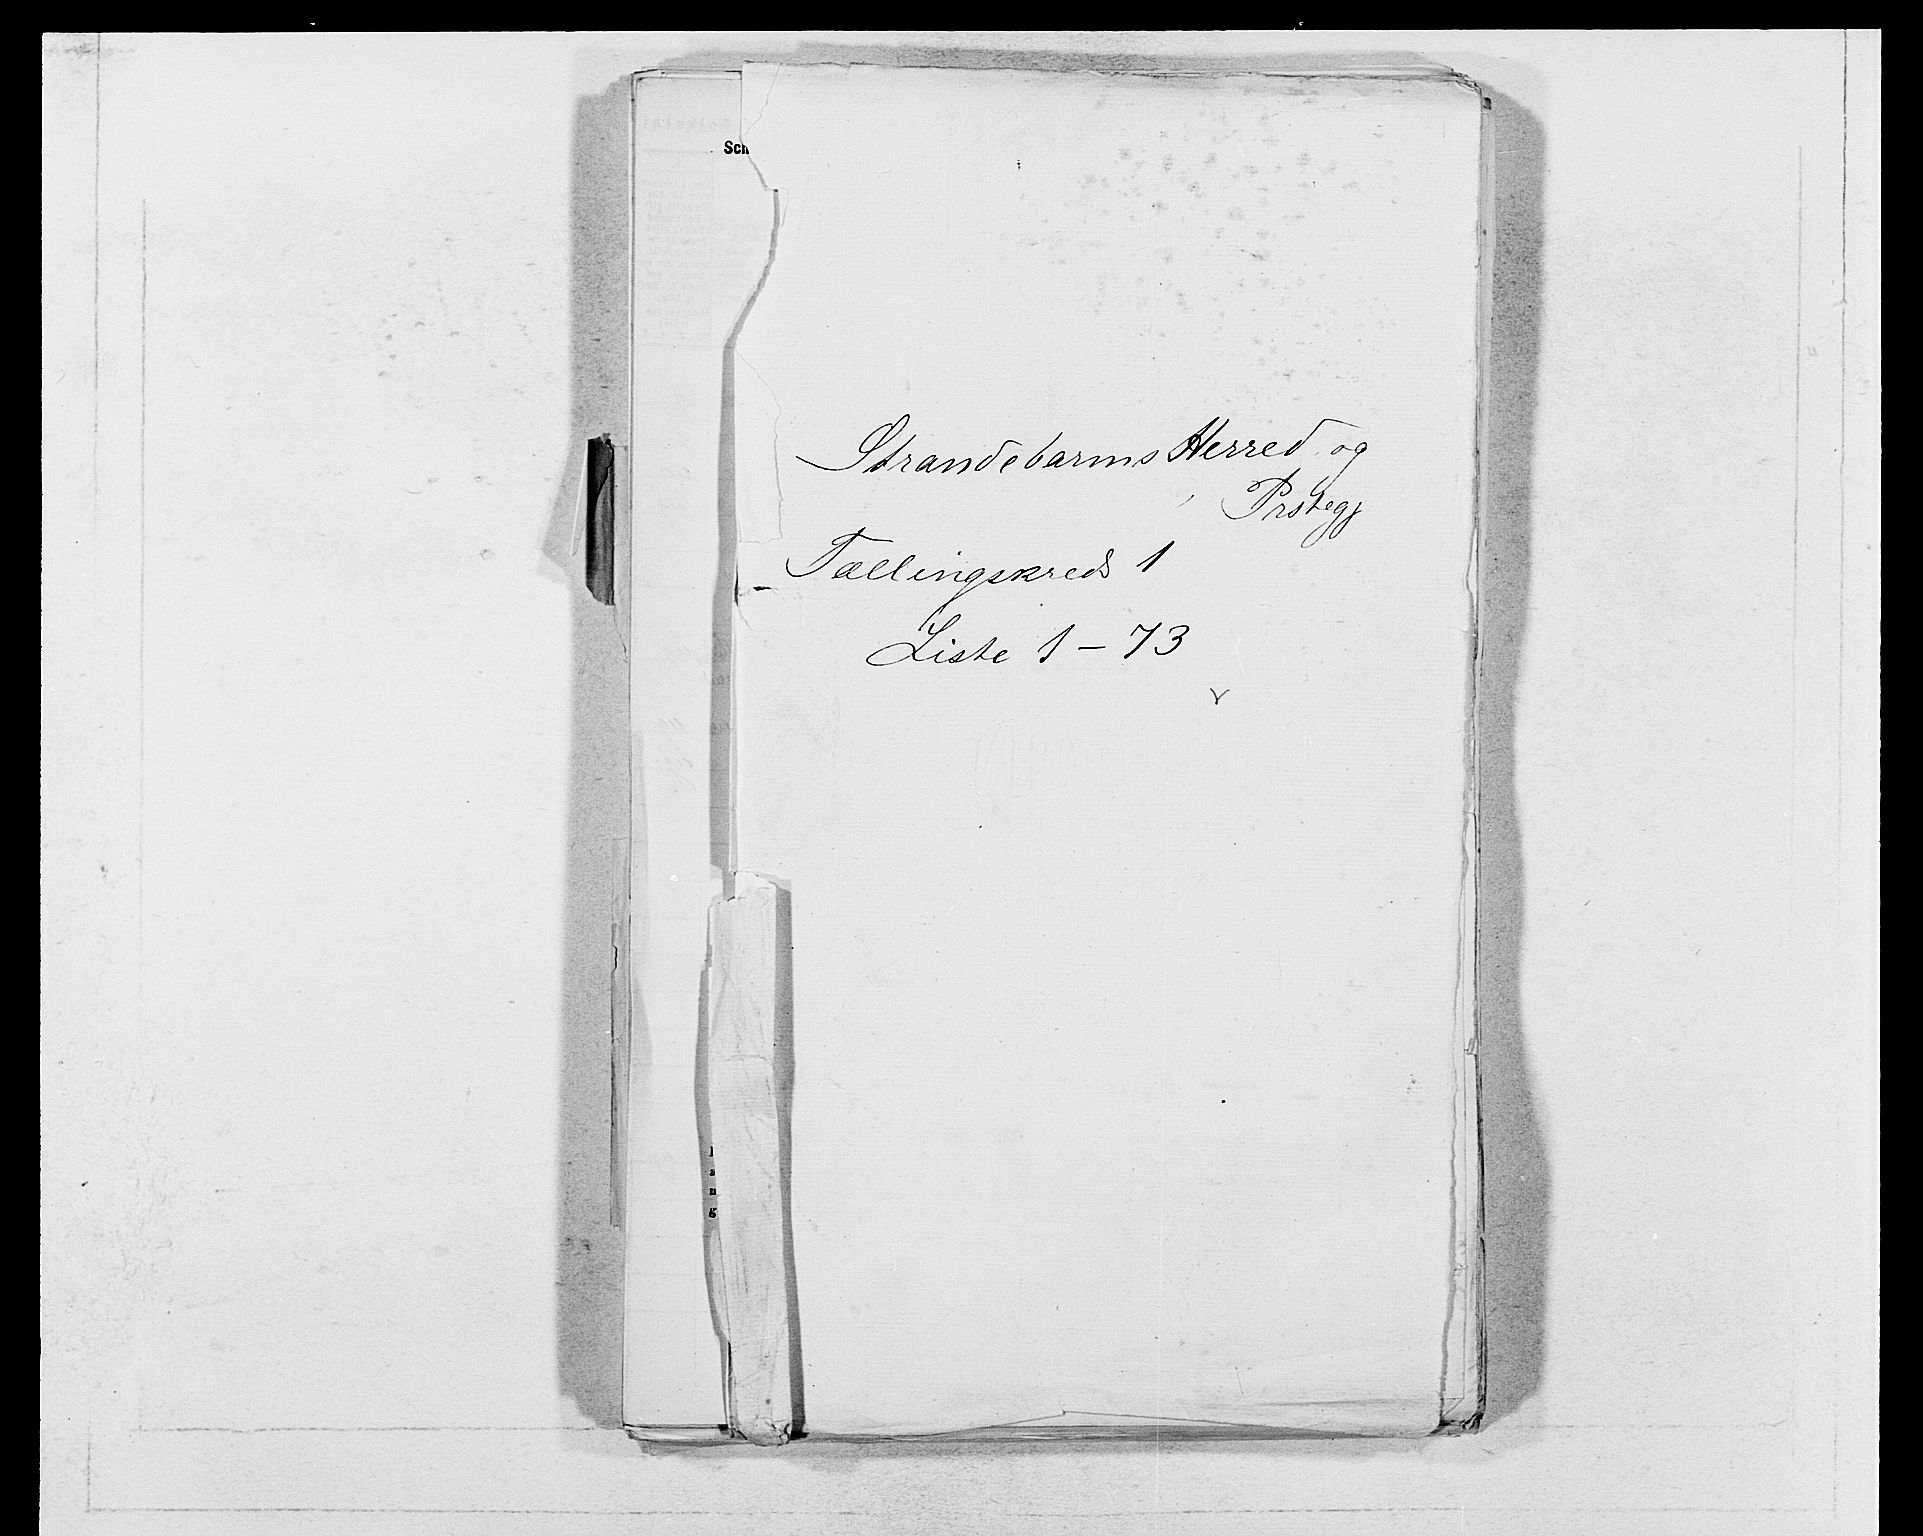 Sch
Strandebarms Herred og
Prstegj
Tællingskreds 1
Liste 1 – 73